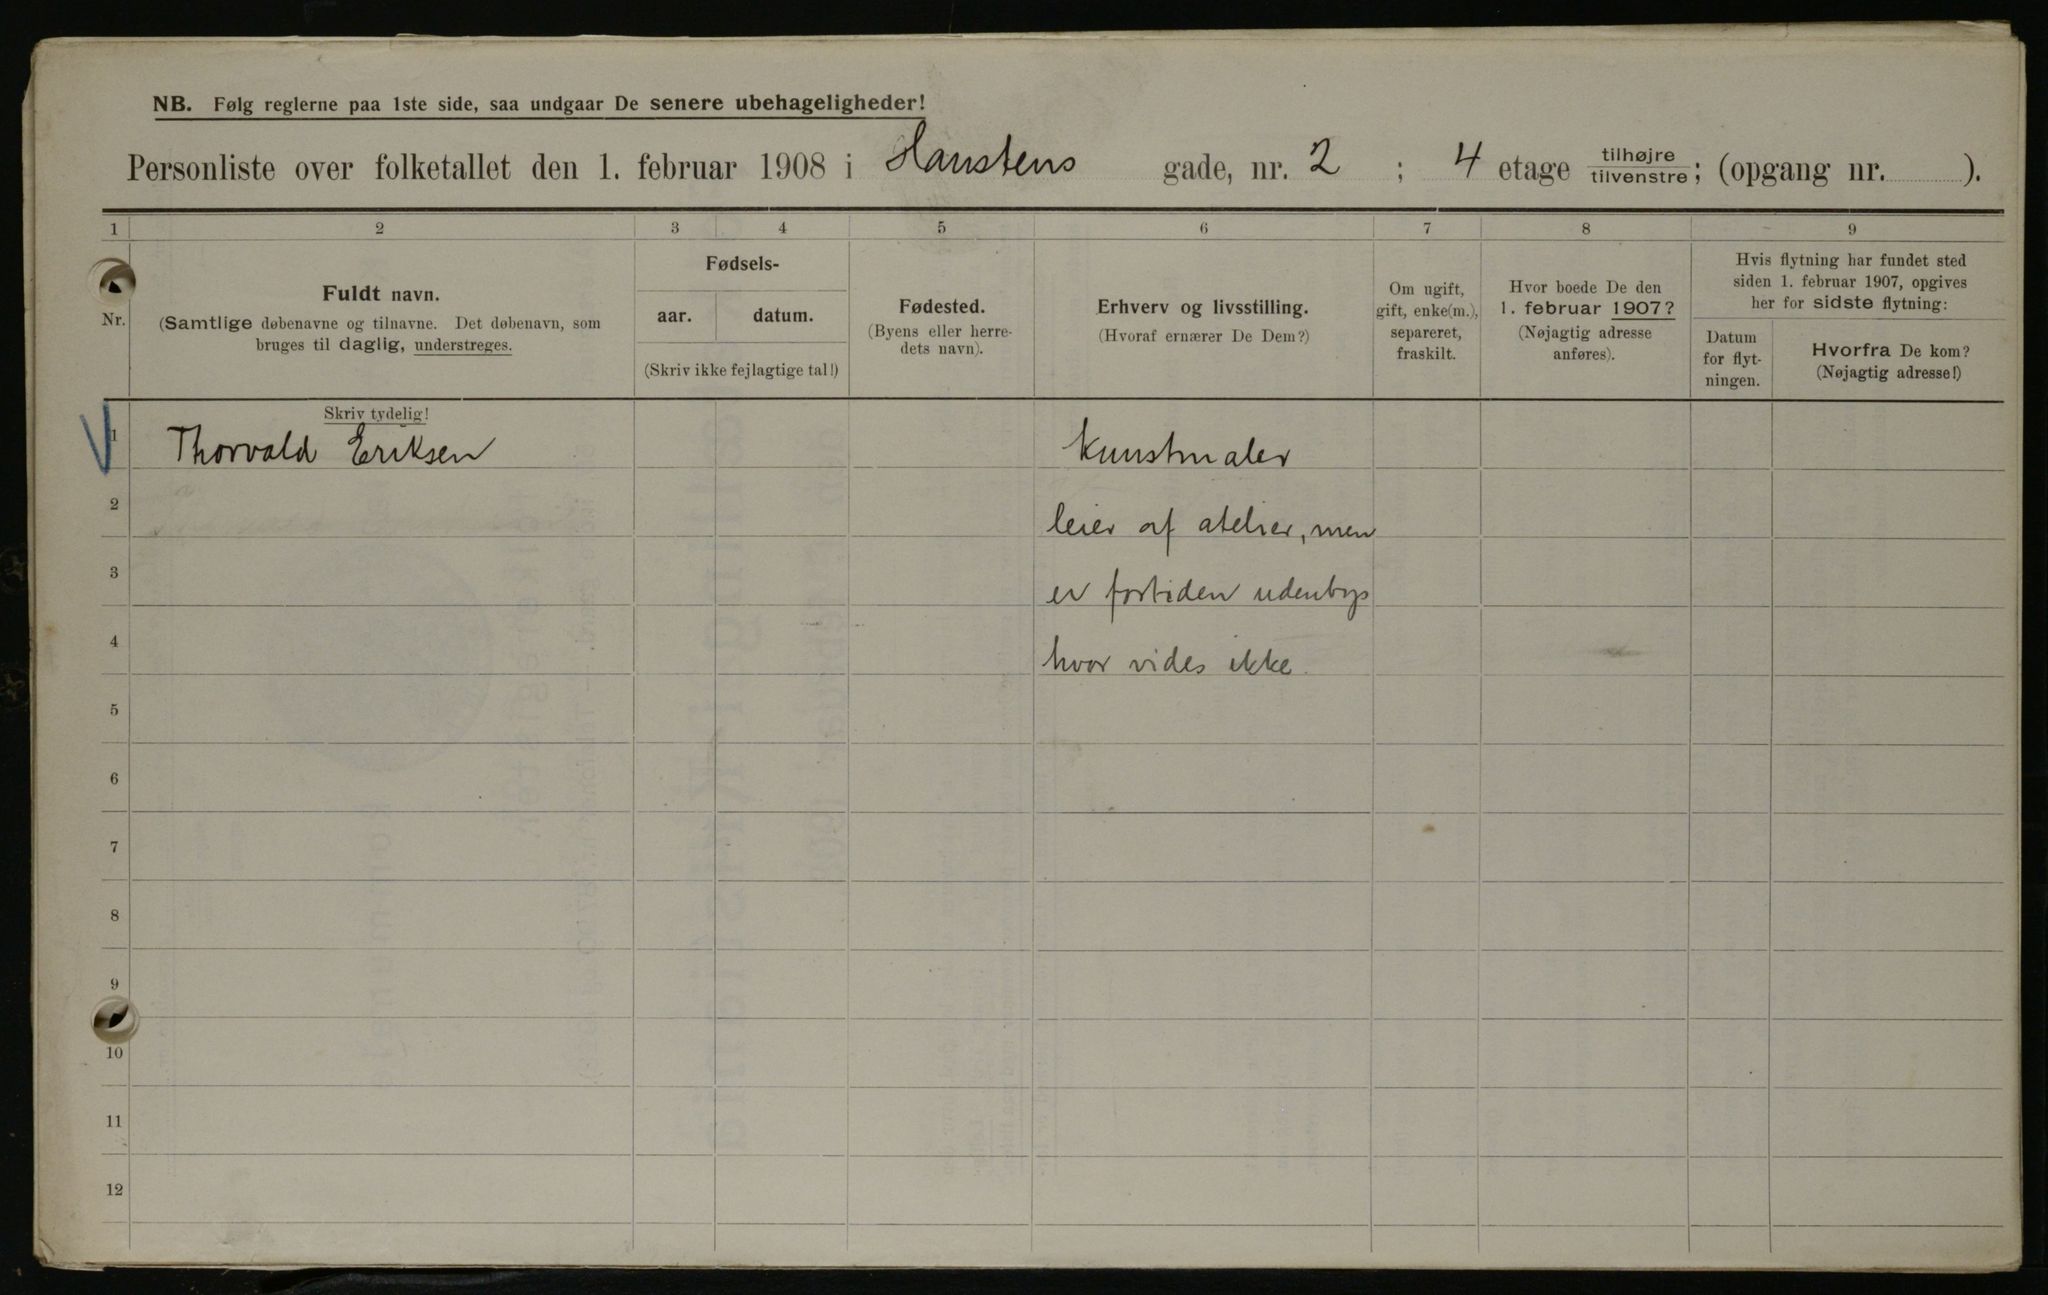 NB. Følg reglerne paa 1ste side, saa undgaar De senere ubehageligheder!
Personliste over folketallet den 1. februar 1908 i Haustens gade, nr. 2 ; 4 etage tilhøjre tilvenstre; (opgang nr. ).
1 2 3 4 5 6 7 8 9
Nr.
Fuldt navn.
(Samtlige døbenavne og tilnavne. Det døbenavn, som
bruges til daglig, understreges.
Skriv tydelig!
Fødsels-
aar. datum.
(Skriv ikke fejlagtige tal!)
Fødested.
(Byens eller herre-
dets navn).
Erhverv og livsstilling.
(Hvoraf ernærer De Dem?)
Om ugift,
gift, enke(m.),
separeret,
fraskilt.
Hvor boede De den
1. februar 1907?
(Nøjagtig adresse
anføres).
Hvis flytning har fundet sted
siden 1. februar 1907, opgives
her for sidste flytning:
Datum
for flyt-
ningen.
Hvorfra De kom?
(Nøjagtig adresse!)
1 Thorvald Eriksen Kunstmaler
2 leier af atelier, men
3 er fortiden udenbys
4 hvor vides ikke.
5
6
7
8
9
10
11
12